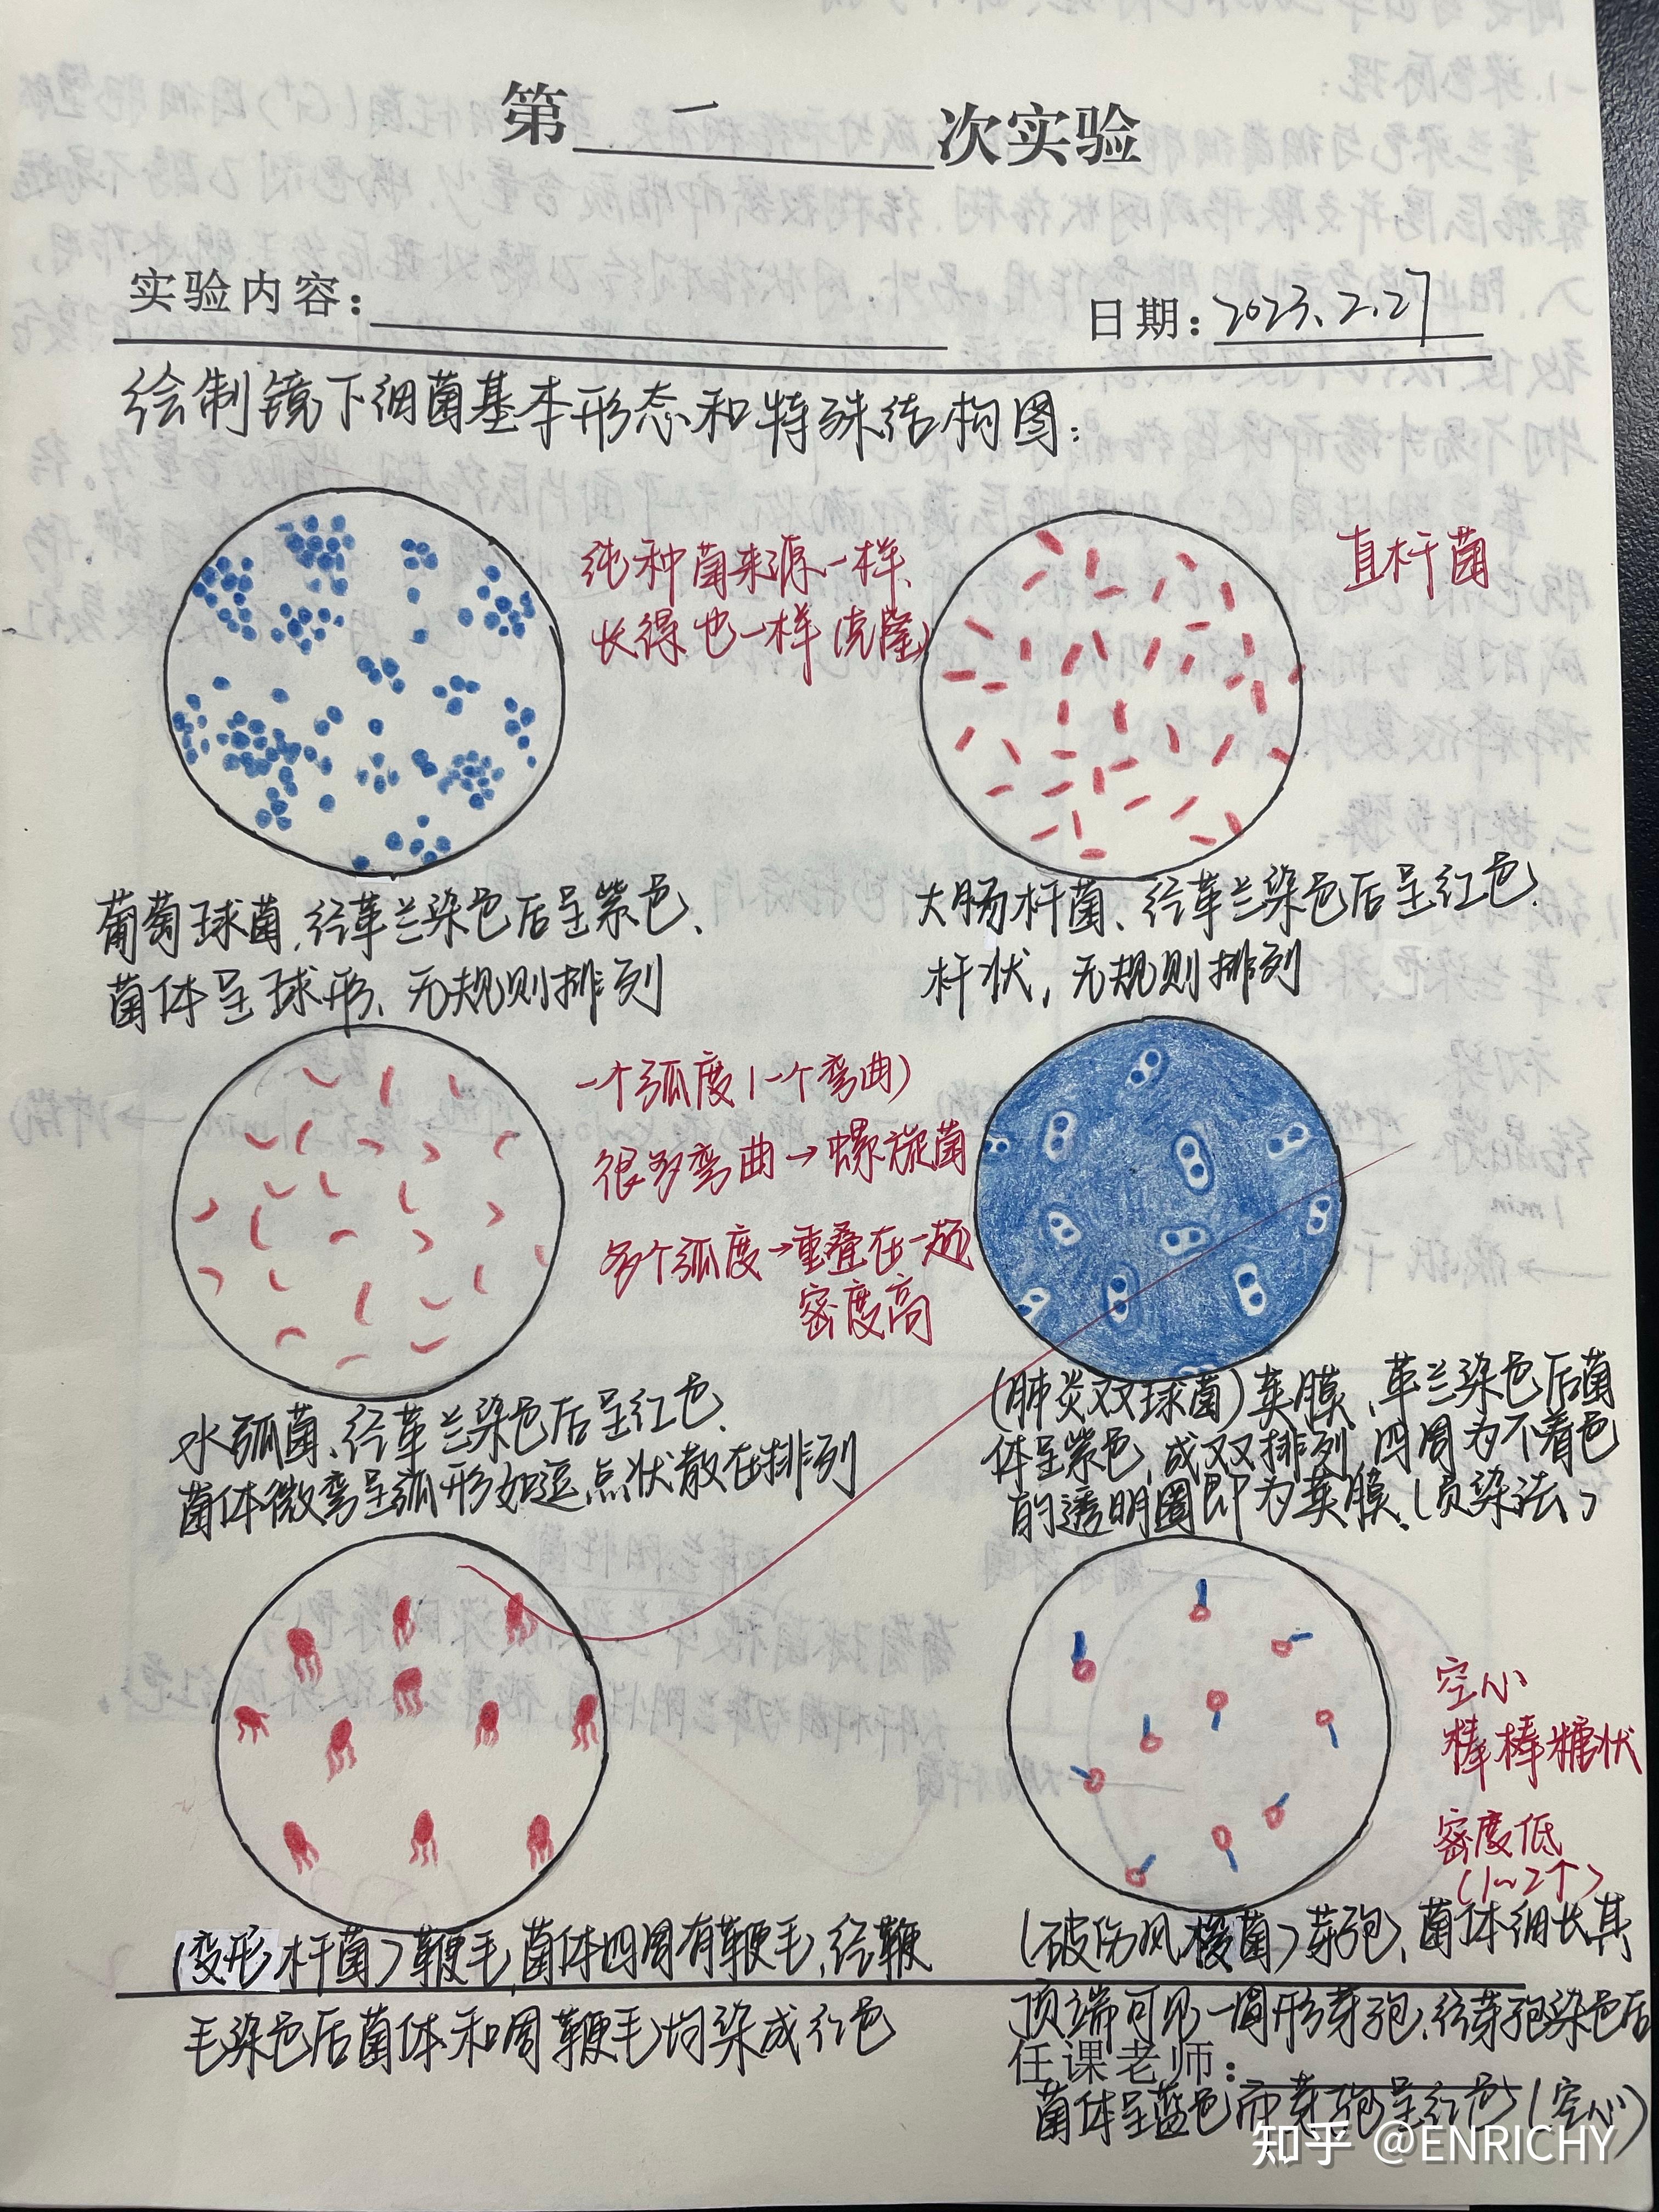 第 一 次实验
实验内容：
日期：2023.2.27
绘制镜下细菌基本形态和特殊结构图：
纯种菌来源一样、
长得也一样（克隆）
直杆菌
葡萄球菌，经革兰染色后呈紫色、
菌体呈球形、无规则排列
大肠杆菌、经革兰染色后呈红色、
杆状，无规则排列
一个弧度（一个弯曲）
很多弯曲→螺旋菌
多个弧度→重叠在一起
密度高
水弧菌、经革兰染色后呈红色、
菌体微弯呈弧形如逗点状散在排列
（肺炎双球菌）荚膜，革兰染色后菌
体呈紫色，成双排列，四周为不着色
的透明圈即为荚膜、（负染法）
空心
棒棒糖状
密度低
（1~2个）
（变形杆菌）鞭毛，菌体四周有鞭毛，经鞭
毛染色后菌体和周鞭毛均染成红色
（破伤风梭菌）芽孢、菌体细长其
顶端可见一圆形芽孢，经芽孢染色后
任课老师：
菌体呈蓝色而芽孢呈红色（空心）
知乎 @ENRICHY